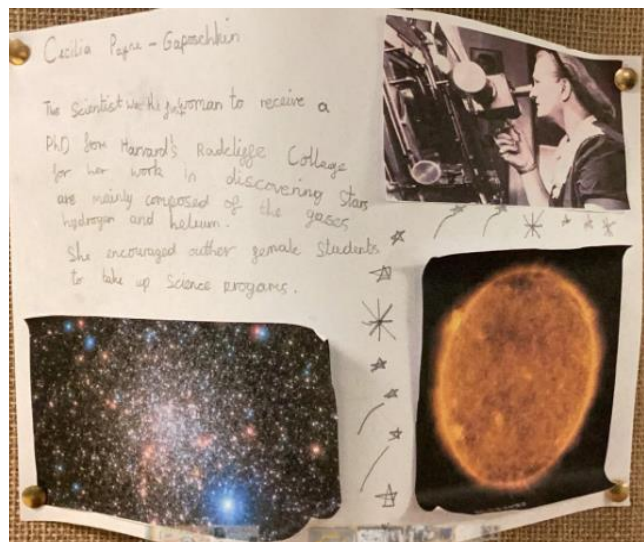 Cecilia Payne-Gaposchkin
The Scientist was the first woman to receive a
PhD from Harvard's Radcliffe Collage
for her work in discovering stars
are mainly composed of the gases
hydrogen and helium.
She encouraged outher female students
to take up science progams.